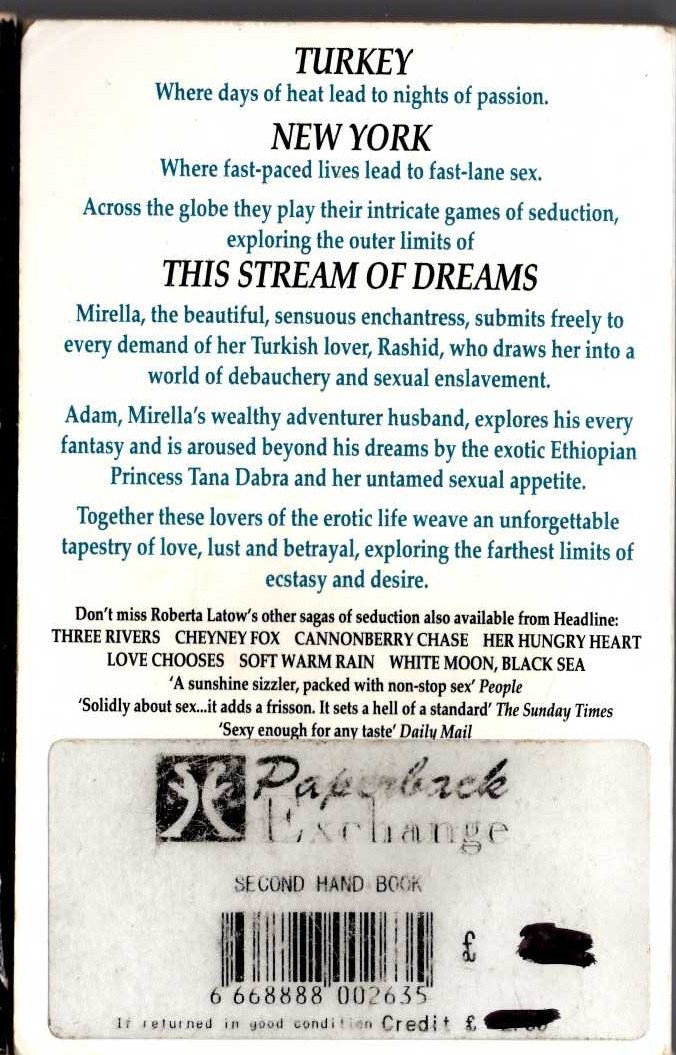 TURKEY
Where days of heat lead to nights of passion.
NEW YORK
Where fast-paced lives lead to fast-lane sex.
Across the globe they play their intricate games of seduction,
exploring the outer limits of
THIS STREAM OF DREAMS
Mirella, the beautiful, sensuous enchantress, submits freely to
every demand of her Turkish lover, Rashid, who draws her into a
world of debauchery and sexual enslavement.
Adam, Mirella's wealthy adventurer husband, explores his every
fantasy and is aroused beyond his dreams by the exotic Ethiopian
Princess Tana Dabra and her untamed sexual appetite.
Together these lovers of the erotic life weave an unforgettable
tapestry of love, lust and betrayal, exploring the farthest limits of
ecstasy and desire.
Don't miss Roberta Latow's other sagas of seduction also available from Headline:
THREE RIVERS CHEYNEY FOX CANNONBERRY CHASE HER HUNGRY HEART
LOVE CHOOSES SOFT WARM RAIN WHITE MOON, BLACK SEA
'A sunshine sizzler, packed with non-stop sex' People
'Solidly about sex...it adds a frisson. It sets a hell of a standard' The Sunday Times
'Sexy enough for any taste' Daily Mail
Paperback
Exchange
SECOND HAND BOOK
£
6 668888 002635
If returned in good condition Credit £